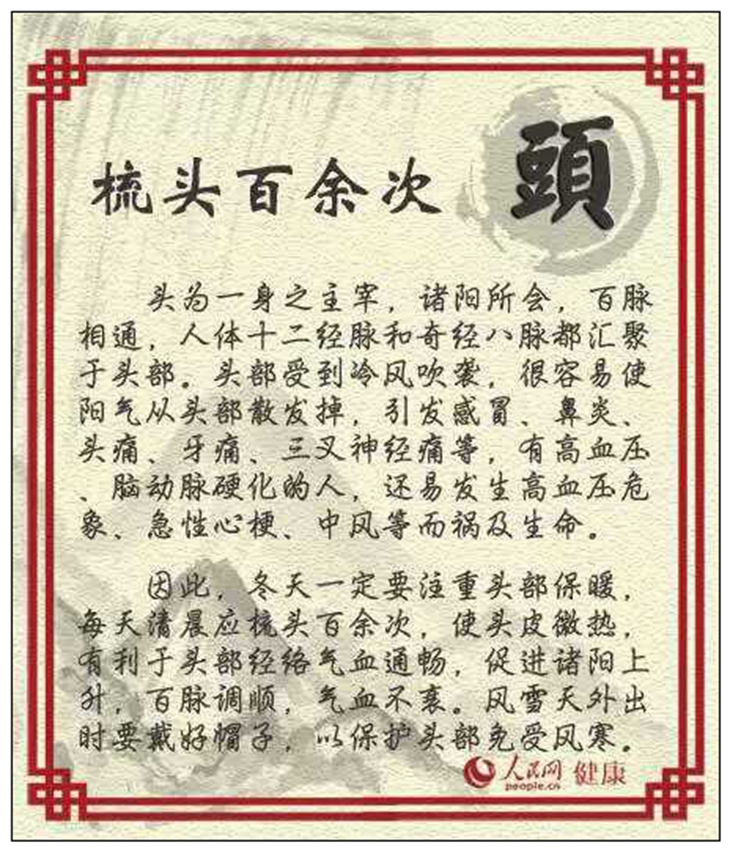 梳头百余次
頭
头为一身之主宰，诸阳所会，百脉
相通，人体十二经脉和奇经八脉都汇聚
于头部。头部受到冷风吹袭，很容易使
阳气从头部散发掉，引发感冒、鼻炎、
头痛、牙痛、三叉神经痛等，有高血压
、脑动脉硬化的人，还易发生高血压危
象、急性心梗、中风等而祸及生命。
因此，冬天一定要注重头部保暖，
每天清晨应梳头百余次，使头皮微热，
有利于头部经络气血通畅，促进诸阳上
升，百脉调顺，气血不衰。风雪天外出
时要戴好帽子，以保护头部免受风寒。
人民网 健康
people.cn